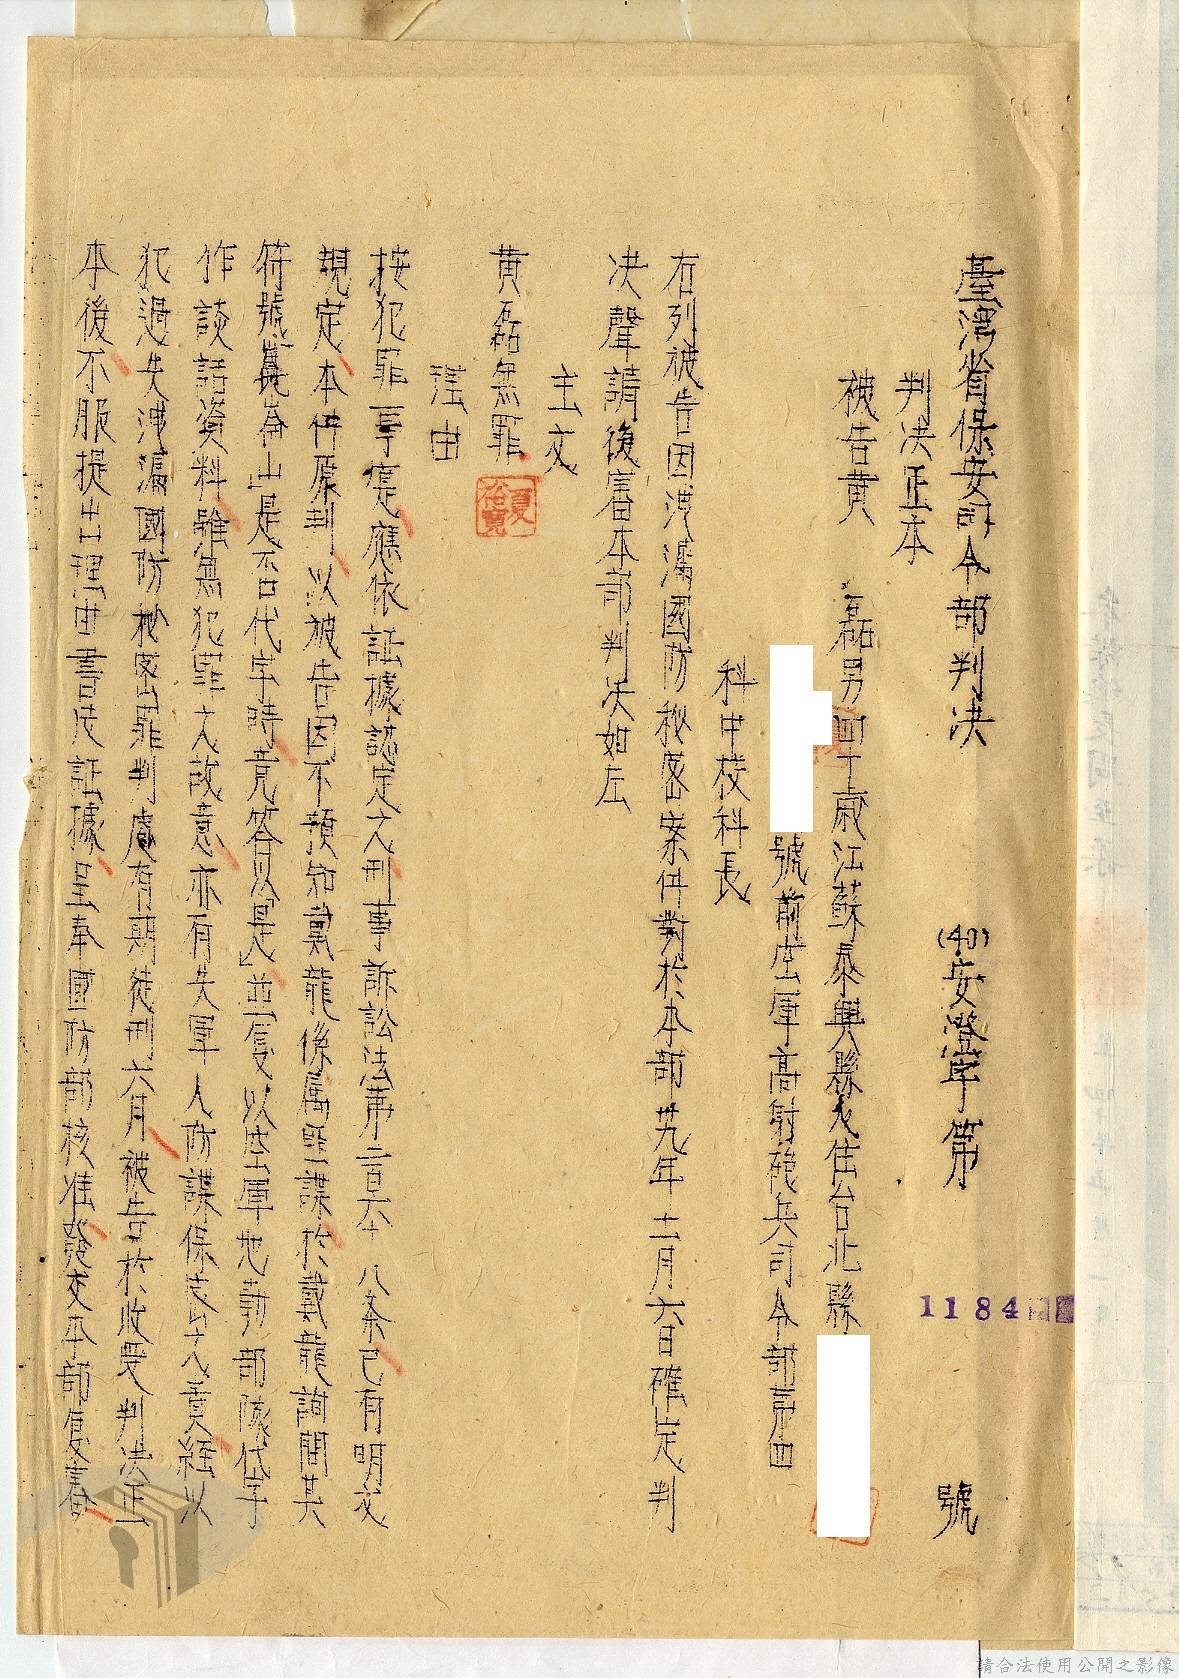 臺灣省保安司令部判决 (40)安澄字第1184號
判决正本
被告黄 磊男四十歲江蘇泰興縣人住台北縣
號前空軍高射砲兵司令部第四
科中校科長
右列被告因洩漏國防秘密案件對於本部卅九年十二月六日確定判
决聲請復審本部判决如左
主文
黄磊無罪
夏裕寬
理由
按犯罪事實應依証據認定之刑事訴訟法第二百六十八条已有明文
規定本件原判以被告因不預知戴龍係屬匪諜於戴龍詢問其
符號崑崙山」是否代字時竟答以是」並復以空軍地勤部隊代字
作談話資料雖無犯罪之故意亦有失軍人防諜保密之責經以
犯過失洩漏國防秘密罪判處有期徒刑六月被告於收受判决正
本後不服提出理由書及証據呈奉國防部核准發交本部復審
請合法使用公開之影像